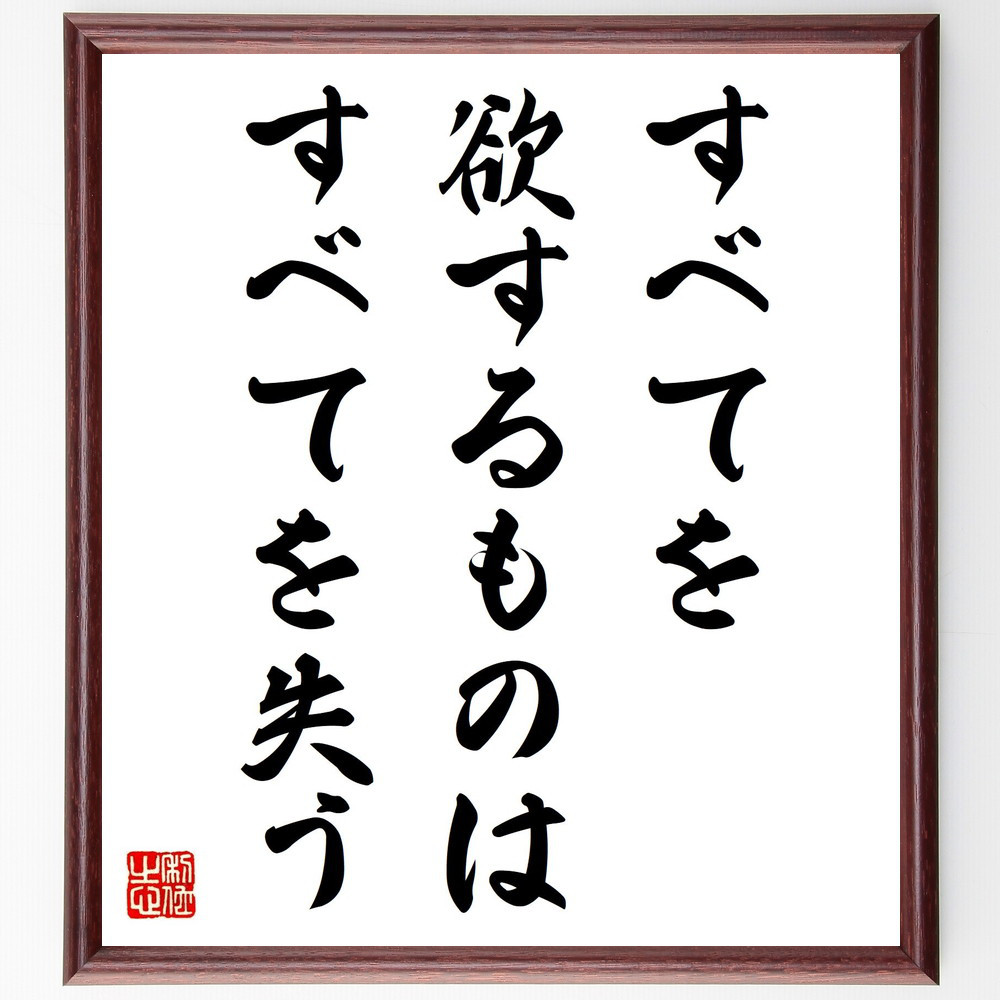 すべてを
欲するものは
すべてを失う